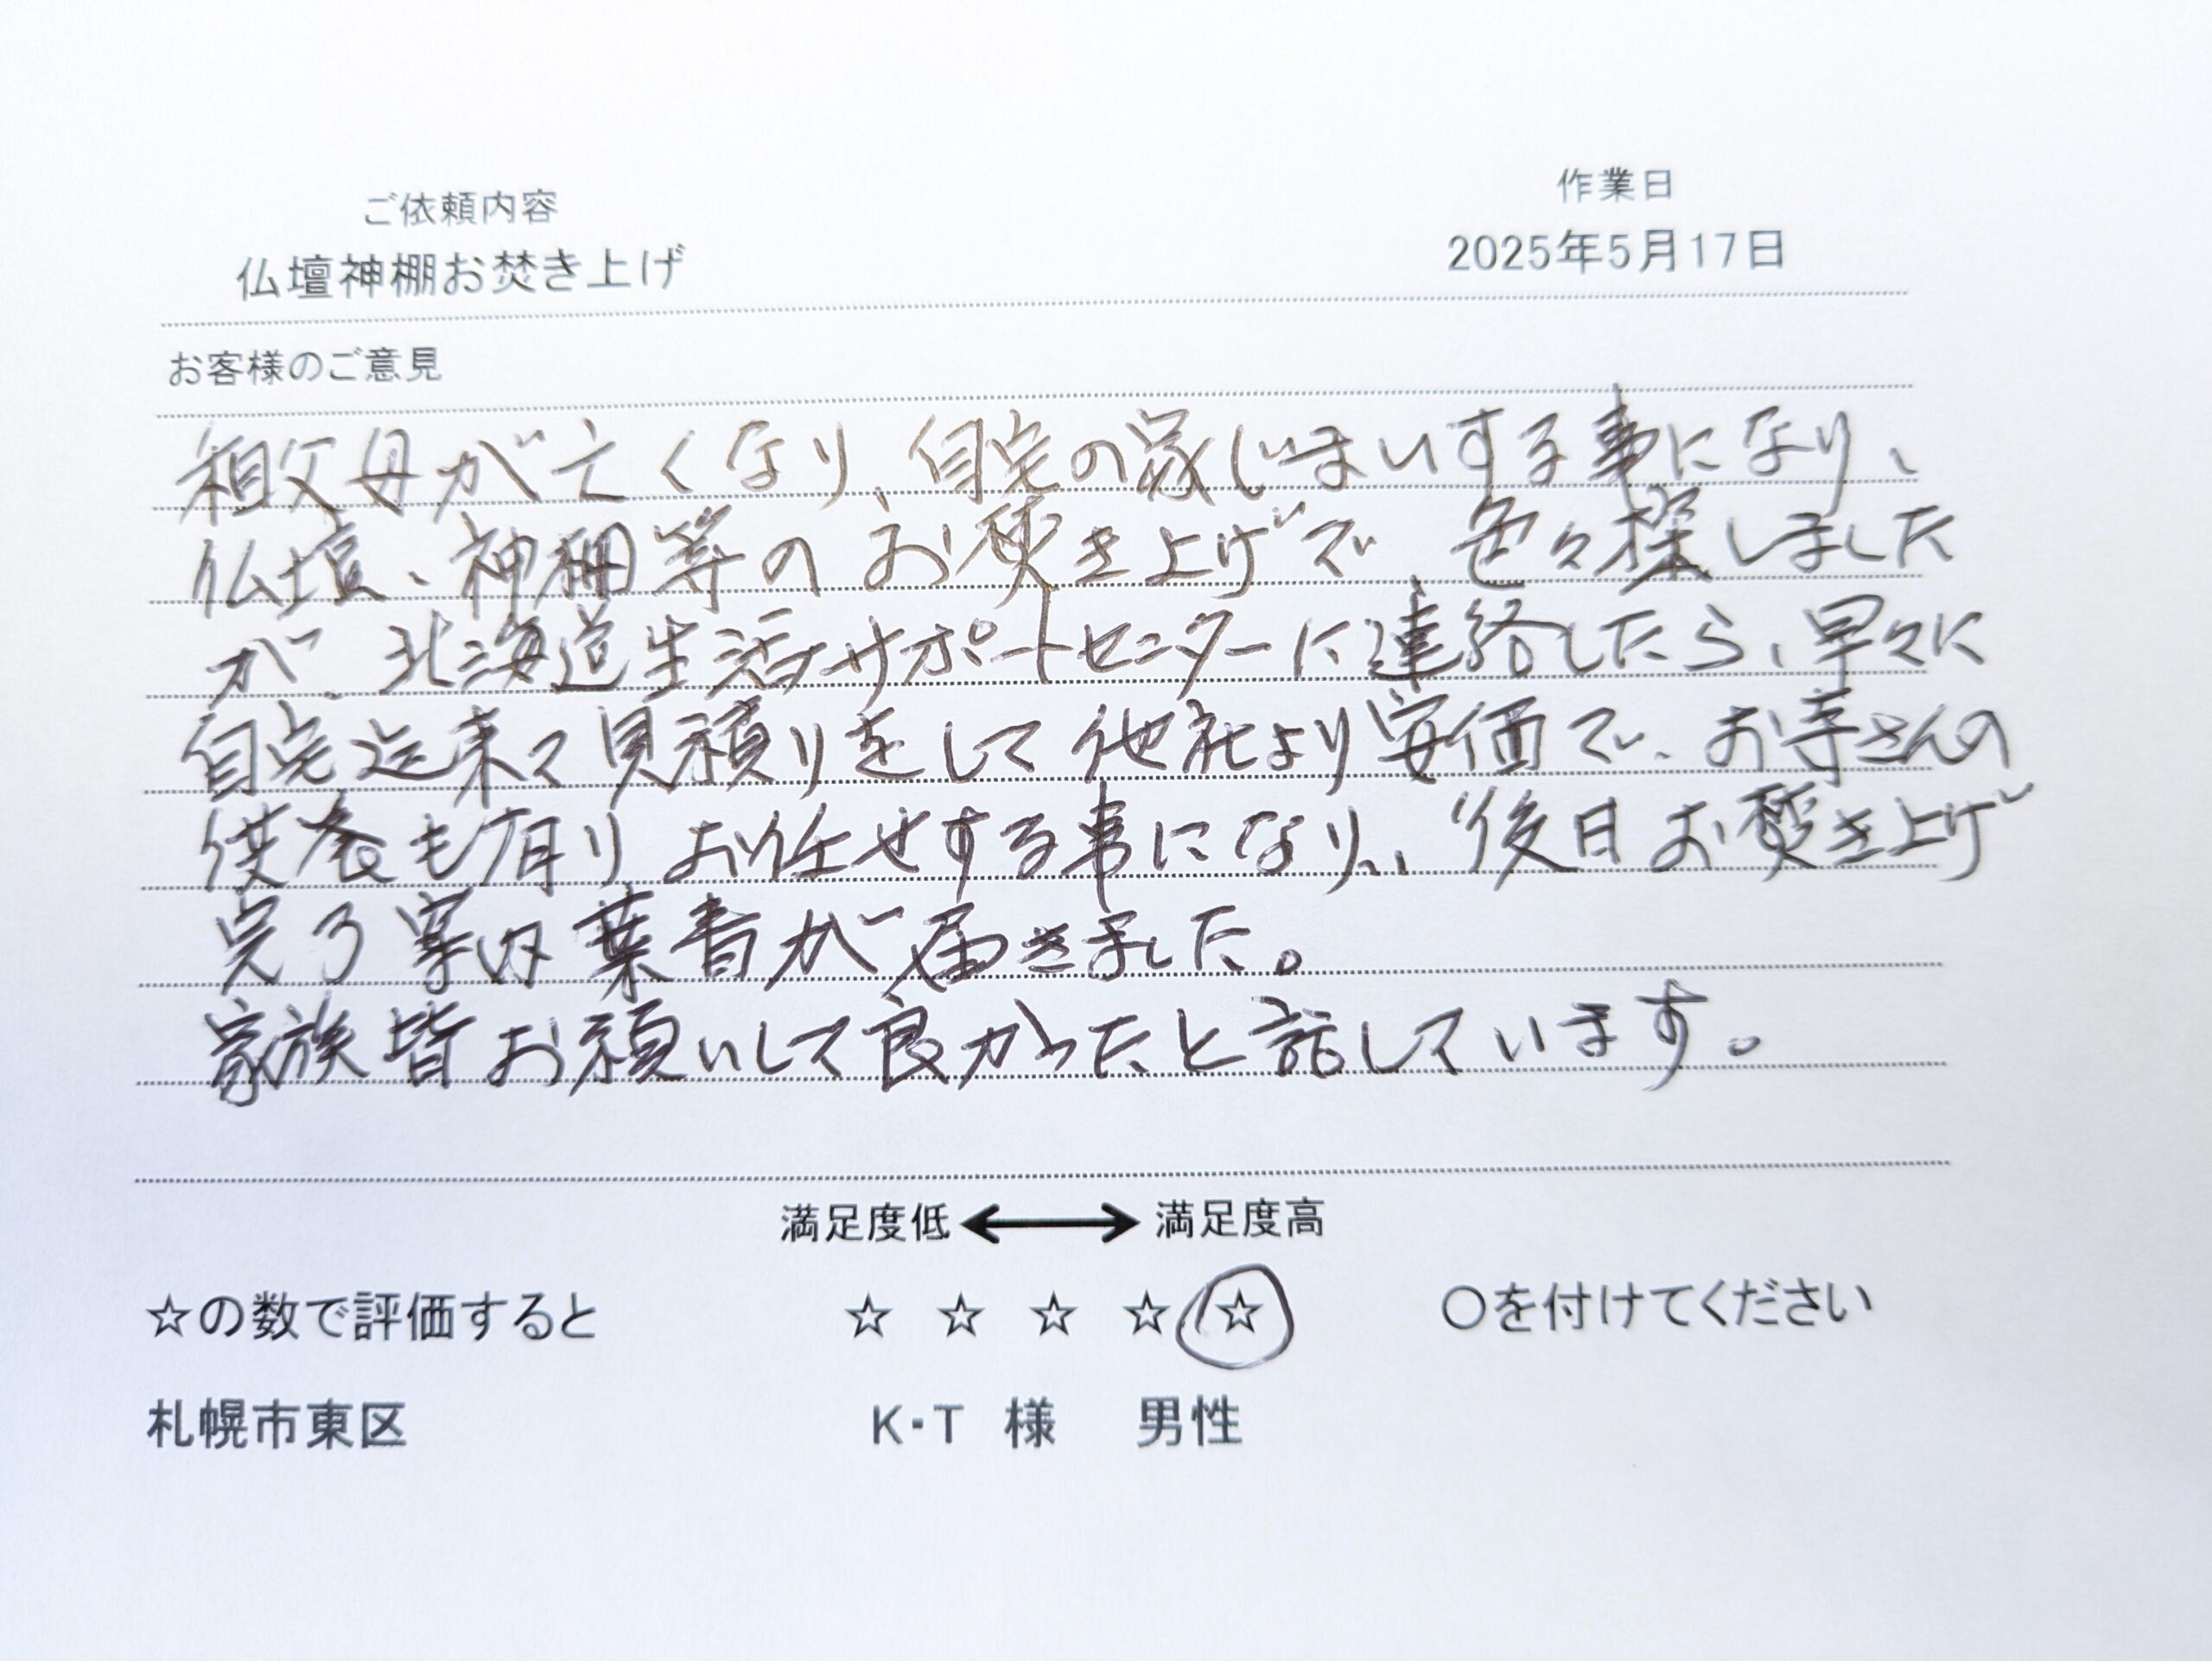 ご依頼内容
作業日
仏壇神棚お焚き上げ
2025年5月17日
お客様のご意見
祖父母が亡くなり、自宅の家じまいする事になり、
仏壇、神棚等のお焚き上げで、色々探しました
が、北海道生活サポートセンターに連絡したら、早々に
自宅迄来て見積りをして他社より安価で、お寺さんの
供養も有りお任せする事になり、後日お焚き上げ
完了葉書が届きました。
家族皆お願いして良かったと話しています。
満足度低 ⟷ 満足度高
☆の数で評価すると ☆ ☆ ☆ ☆ ☆ 〇を付けてください
札幌市東区 K・T 様 男性